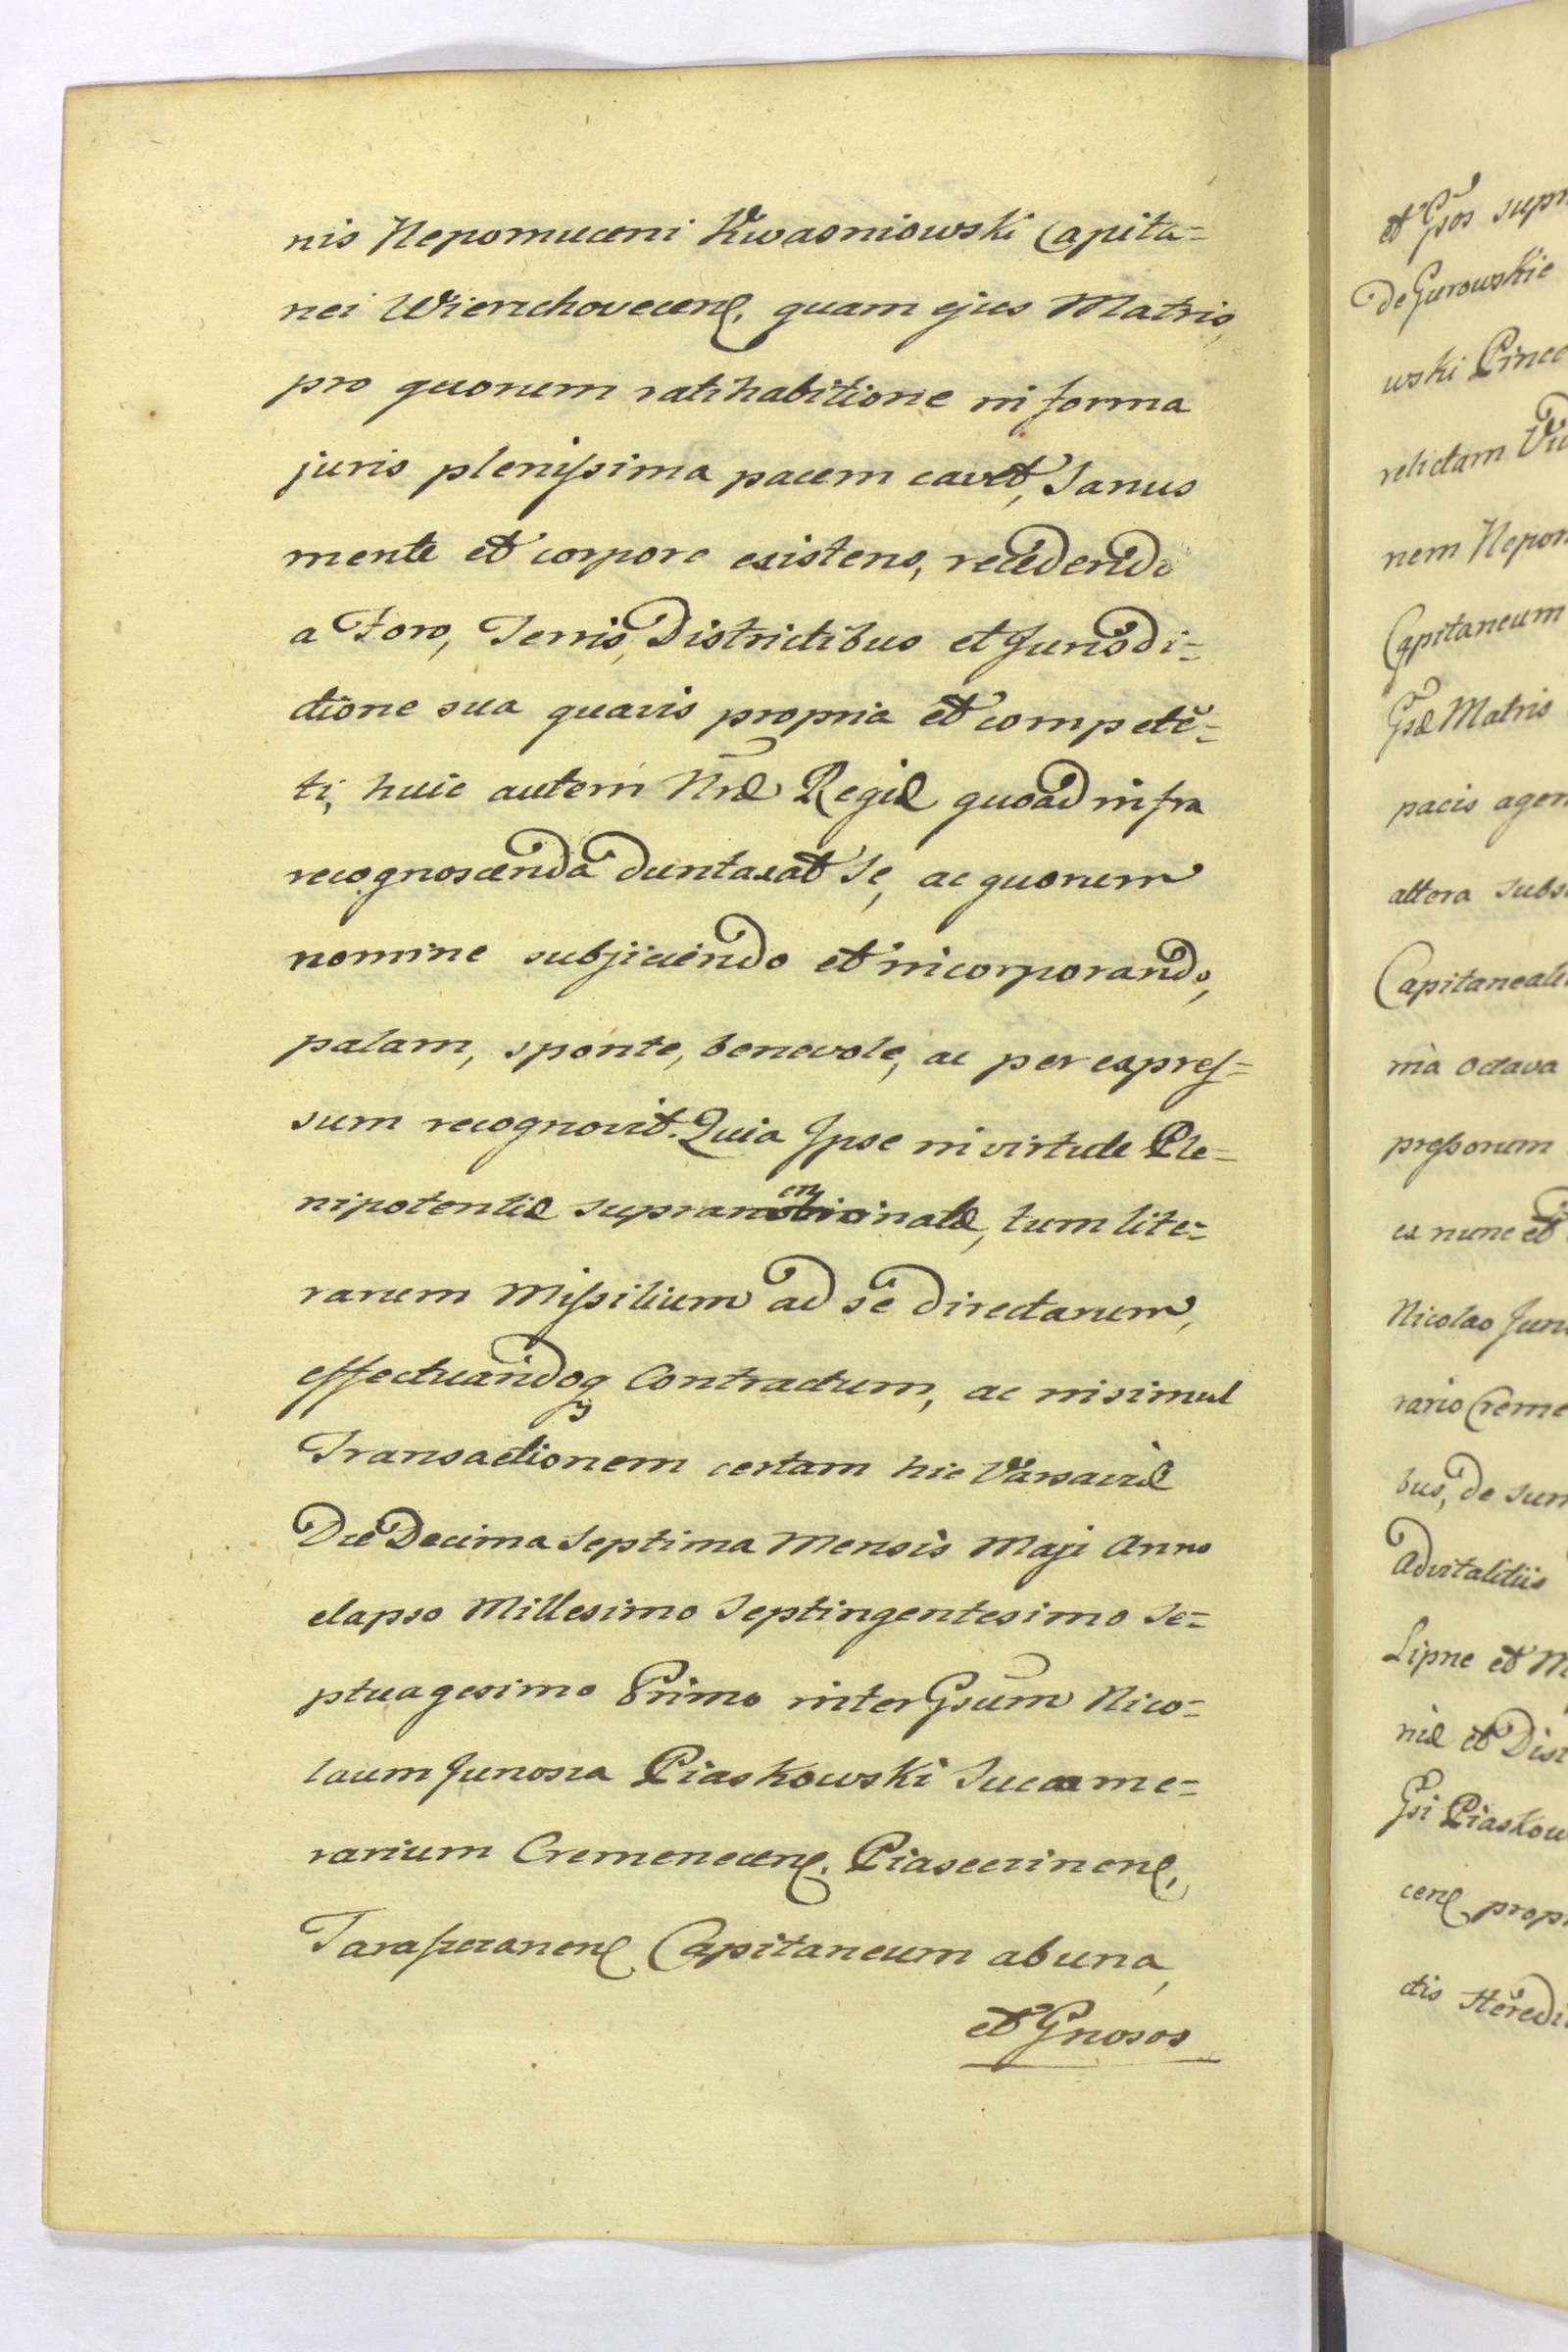 nis Nepomuceni Kwasniowski Capita=
nei Wierzchovecens, quam ejus Matris,
pro quorum ratihabitione in forma
juris plenissima pacem cavet, Sanus
mente et corpore existens, recedendo
a Foro, Terris, Districtibus et Jurisdi=
ctione sua quavis propria et competẽ=
ti, huic autem Nræ Regiæ quoad infra
recognoscenda duntaxat se, ac quorum
nomine subjiciendo et incorporando,
palam, sponte, benevole, ac per expres=
sum recognovit. Quia Ipse in virtute Ple=
nipotentiæ supranominatæ, tum lite=
rarum Missilium ad se directarum,
effectuandoq Contractum, ac insimul
Transactionem certam hic Varsaviæ
Die Decima Septima Mensis Maji Anno
elapso Millesimo Septingentesimo Se=
ptuagesimo Primo inter Gsum Nico=
laum Junosza Piaskowski Succame=
rarium Cremenecens, Piasecznens,
Taraszczanens Capitaneum ab una,
et Gnosos
et Gsos supr
de Gurowskie
wski Pince
relictam
nem Nepom
Capitaneum
Gsæ Matris
pacis agen
altera subs
Capitaneale
nia octava
pressorum
ex nunc et
Nicolao Jun
rario Creme
bus, de sum
Advitalitiis
Lipne et M
niæ et Dist
Gsi Piaskow
cens propr
ctis Heredi